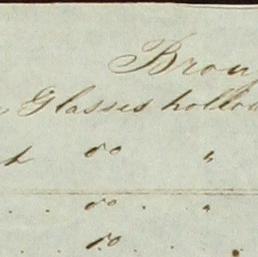 Brou
Glasses hollow
do "
. . do . "
. . do . .